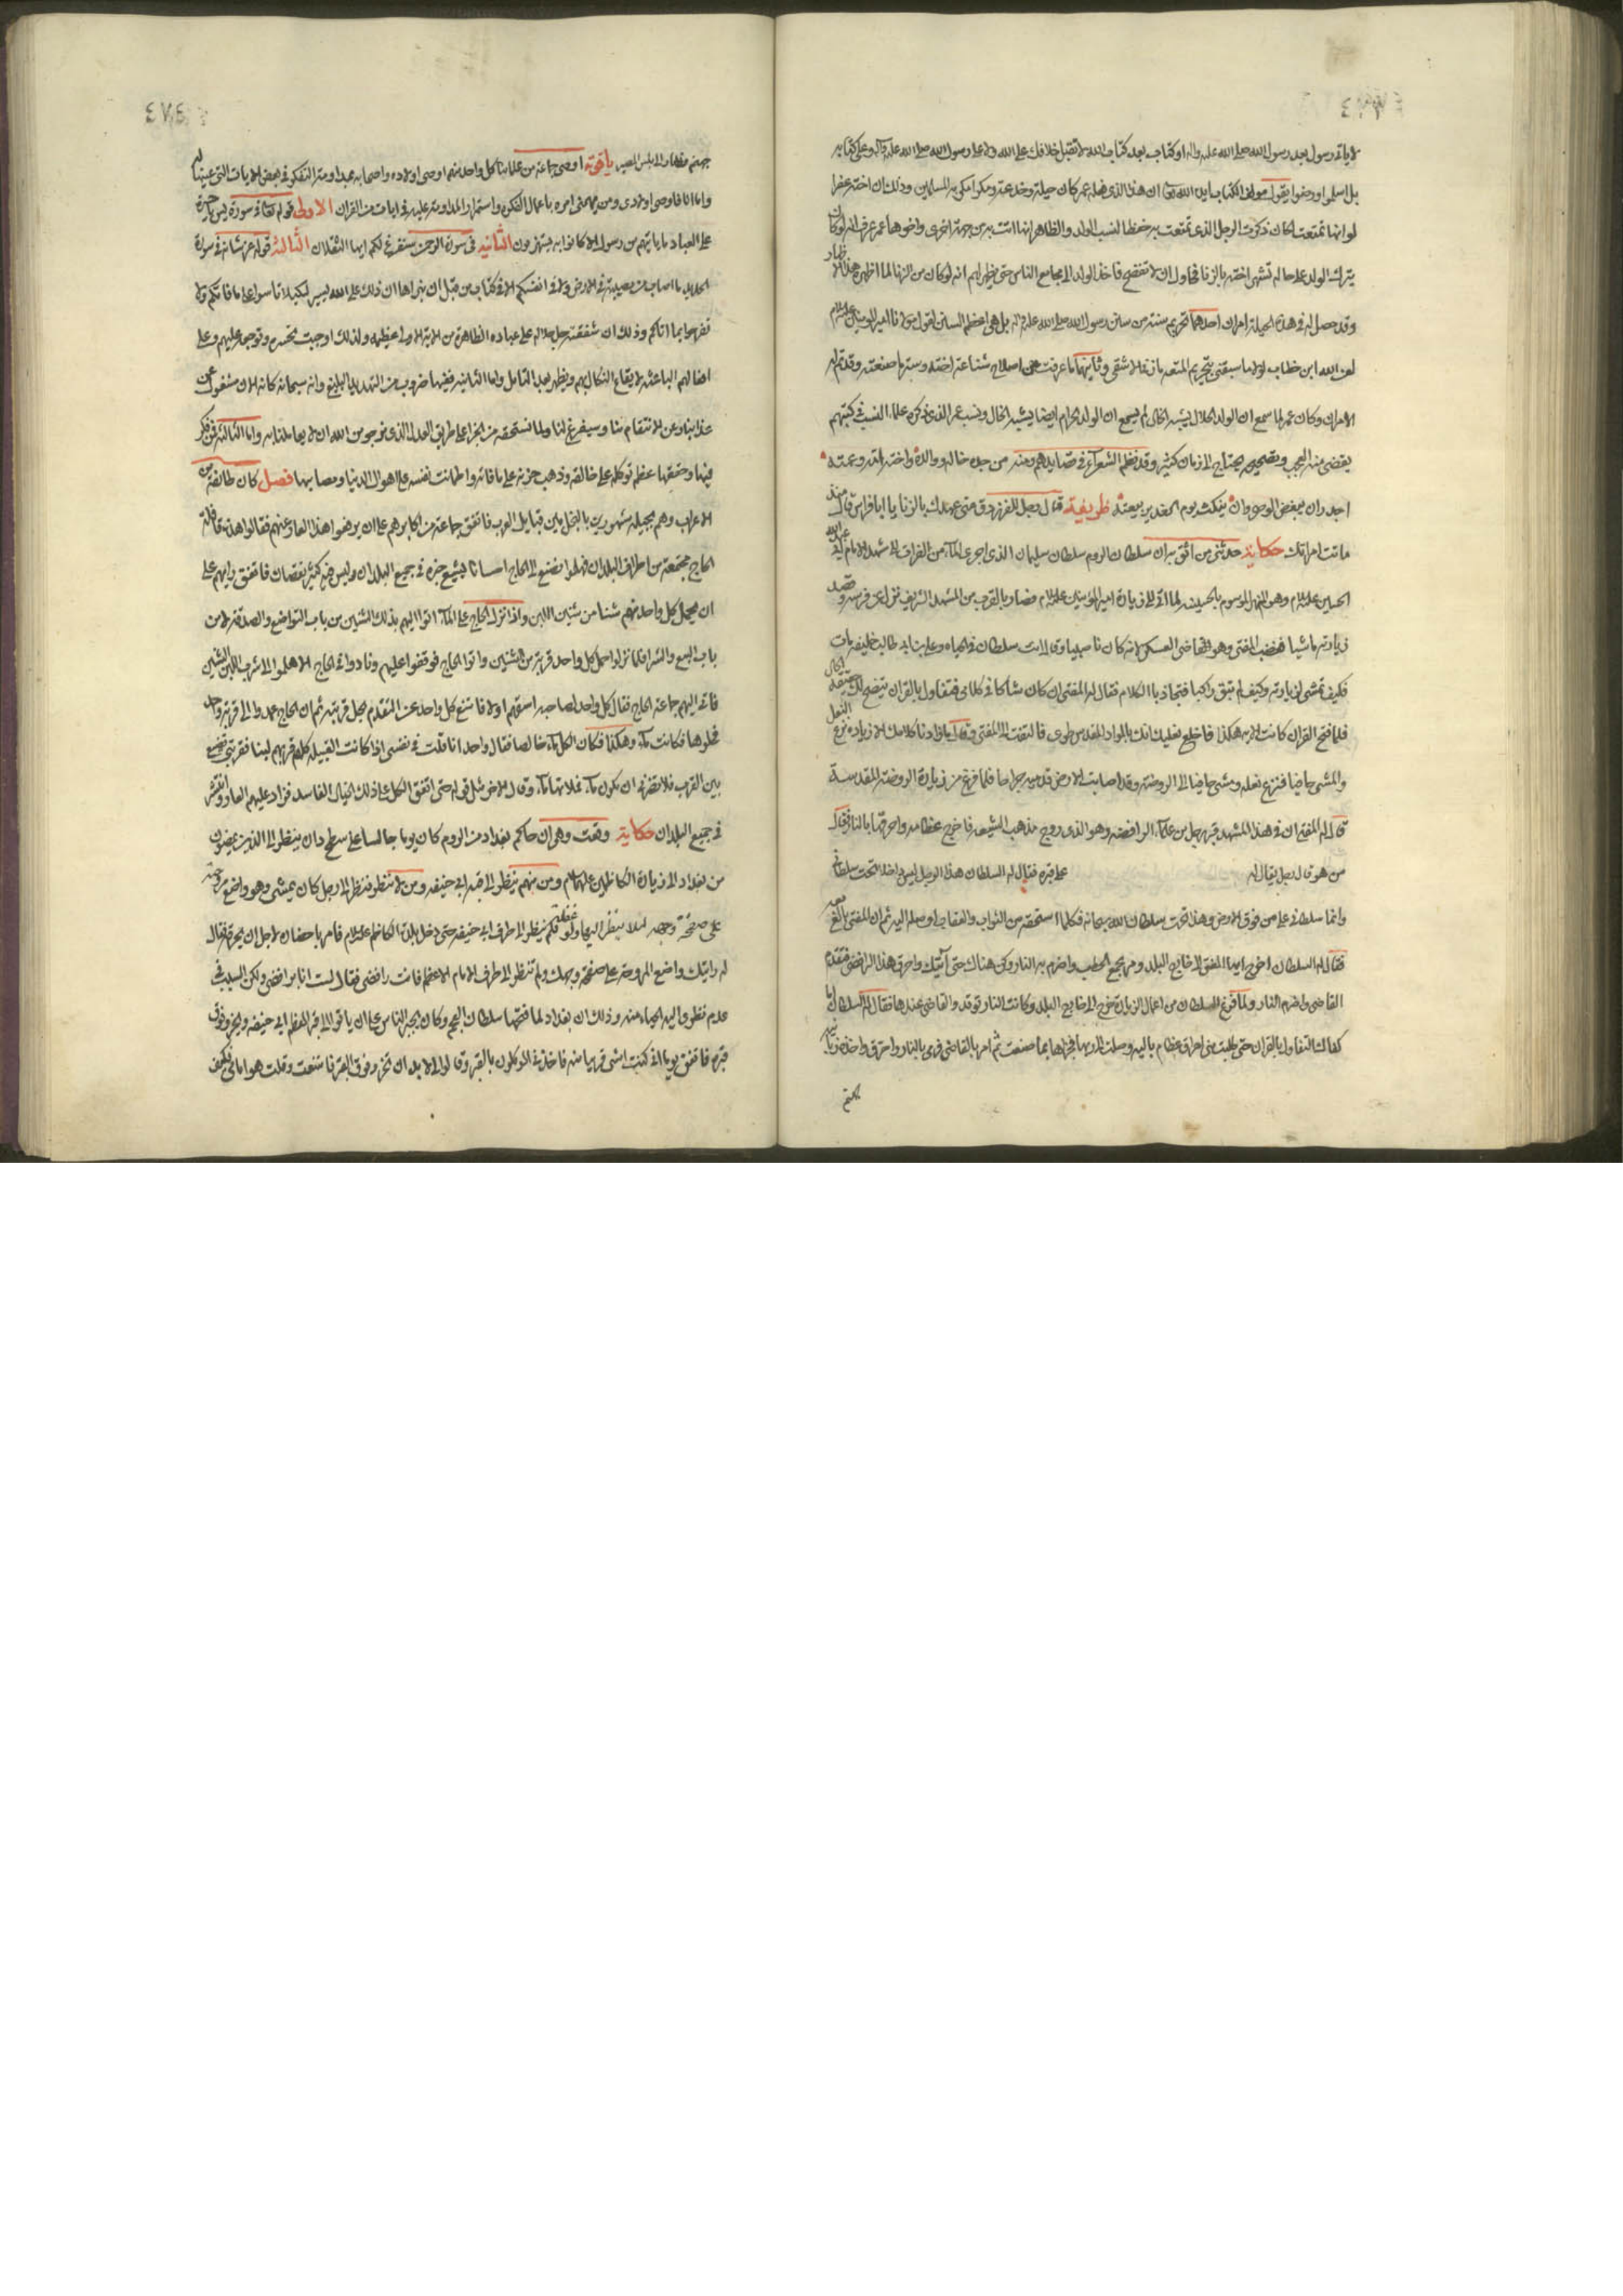 لاياتى رسول بعد رسول الله صلى الله عليه واله او كتاب بعد كتاب الله لا تقبل خلافك على الله ولا على رسول الله صلى الله عليه وآله وعلى كتابه
يقول مولف الكتاب ايده الله تعالى ان هذا الذى فعله عمر كان حيلة وخدعة ومكرا مكر به المسلمين وذلك ان اخته عفرا
لو انها تمتعت لكان ذكرت الرجل الذى تمتعت به حفظا لنسب الولد والظاهر انها اتت به من جهة اخرى واخوها عمر عرف انه لو كان
يترك الولد على حاله تشتهر اخته بالزنا فحاول ان لا تفتضح فاخذ الولد الى مجامع الناس حتى يظهر لهم انه لو كان من الزنا لما اظهره
وقد حصل له فى هذه الحيلة امران احدهما تحريم سنة من سنن رسول الله صلى الله عليه واله بل هى اعظم السنن لقول مولانا امير المومنين عليه السلام
لعن الله ابن خطاب لولا ما سبقنى بتحريم المتعه ما زنى الا شقى وثانيهما ما عرفت من اصلاح شناعة اخته وسترها صنعته وقد تم له
الامران وكان عمر لما سمع ان الولد الحلال يشبه الخال لم يسمع ان الولد الحرام ايضا يشبه الخال ونسب عمر الذى ذكره علماء النسب فى كتبهم
يقضى منه العجب وتصحيحه يحتاج الى زمان كثير وقد نظم الشعرآء فى قصايدهم ومنه من جده خاله ووالده واخته امه وعمته
اجدر ان يبغض الوصى وان ينكث يوم الغدير بيعته ظريفة قال رجل للفرزدق متى عهدك بالزنا يا ابا فراس قال منذ
ماتت امراتك حكاية حدثنى من اثق به ان سلطان الروم سلطان سليمان الذى اجرى المآء من الفرات الى مشهد الامام ابى عبد الله
الحسين عليه السلام وهو النهر الموسوم بالحسينيه لما اتى الى زيارة امير المؤمنين عليه السلام فصار بالقرب من المشهد الشريف نزل عن فرسه وقصد
زيارته ماشيا فغضب المفتى وهو القاضى العسكر لانه كان ناصبيا وقال انت سلطان فى الحياه وعلى بن ابى طالب خليفه مات
فكيف تمشى لزيارته وكيف لم تبق راكبا فتجاذبا الكلام فقال له المفتى ان كان شاكا فى كلامى فتفاول بالقران يتضح لك حقيقة الحال
فلما فتح القران كانت الاية هكذا فاخلع نعليك انك بالواد المقدس طوى فالتفت الى المفتى وقال ما زادنا كلامك الا زيادة نزع النعل
والمشى حافيا فنزع نعله ومشى حافيا الى الروضه وقد اصابت الارض قدميه جراحا فلما فرغ من زيارة الروضه المقدسة
قال له المفتى ان فى هذا المشهد قبر رجل من علمآء الرافضه وهو الذى روج مذهب الشيعه فاخرج عظامه واحرقها بالنار فقال
من هو قال رجل يقال له على قبره فقال له السلطان هذا الرجل ليس داخلا تحت سلطانى
وانما سلطانى على من فوق الارض وهذا تحت سلطان الله سبحانه فكلما استحقه من الثواب والعقاب اوصله اليه ثم ان المفتى بالغ معه
فقال له السلطان اخرج ايها المفتى الى خارج البلد ومر بجمع الحطب واضرم به النار وكن هناك حتى آتيك واحرق هذا الرافضى فتقدم
القاضى واضرم النار ولما فرغ السلطان من اعمال الزيارة خرج الى خارج البلد وكانت النار توقد والقاضى عندها فقال له السلطان اما
كفاك التفاول بالقران حتى طلبت منى احراق عظام باليه وصلت الى ربها فجزاها بما صنعت ثم امر بالقاضى فرمى بالنار واحترق
جهنم
جهنم فصار الى بئس المصير ياقوتة اوصى جماعة من علمائنا كل واحد منهم اوصى اولاده واصحابه بمداومة التفكر فى بعض الايات التى عينها
واما انا فاوصى اولادى ومن يهمنى امره باعمال الفكر واستمرار المداومة عليه فى ايات من القران الاولى قوله تعالى فى سورة يس يا حسرة
على العباد ما ياتيهم من رسول الا كانوا به يستهزون الثانيه فى سورة الرحمن سنفرغ لكم ايها الثقلان الثالثة قوله عز شانه فى سورة
الحديد ما اصاب من مصيبة فى الارض ولا فى انفسكم الا فى كتاب من قبل ان نبراها ان ذلك على الله يسير لكيلا تاسوا على ما فاتكم ولا
تفرحوا بما اتاكم وذلك ان شفقته جل جلاله على عباده الظاهرة من الاية الاولى عظيمه ولذلك اوجبت تحسره وتوجعه عليهم وعلى
افعالهم الباعثة لايقاع النكال بهم ويظهر بعد التامل واما الثانيه ففيها ضروب من التهديد البليغ وانه سبحانه كانه الان مشغول عن
عذابنا وعن الانتقام منا وسيفرغ لنا ولما نستحقه من الجزا على طريق العدل الذى نرجو من الله ان لا يعاملنا به واما الثالثة فمن فكر
فيها وحققها عظم توكله على خالقه وذهب حزنه على ما فاته واطمانت نفسه على اهوال الدنيا ومصايبها فصل كان طائفه من
الاعراب وهم بجيله مشهورين بالبخل بين قبايل العرب فاتفق جماعة من اكابرهم على ان يرفعوا هذا العار عنهم فقالوا هذه قافلة
الحاج مجتمعة من اطراف البلدان فهلموا نصنع الى الحاج احسانا يشيع خبره فى جميع البلدان وليس فيه كثير نقصان فاتفق رايهم على
ان يحمل كل واحد منهم شنا من شنين اللبن واذا نزل الحاج على المآء اتوا اليهم بذلك الشنين من باب التواضع والصدقة لا من
باب البيع والشرا فلما نزلوا حمل كل واحد قربة من الشنين واتوا الحاج فوقفوا عليهم ونادوا فى الحاج الا هلموا الى شرب اللبن الشنين
فاتى اليهم جماعة الحاج فقال كل واحد لصاحبه اسقهم اولا فامتنع كل واحد عن التقدم بحل قربته ثم ان الحاج عمدوا الى قربة رجل
فحلوها فكانت مآء وهكذا فكان الكل مآء خالصا فقال واحد انا قلت فى نفسى اذا كانت القبيله كلهم قربهم لبنا فقربتى تضيع
بين القرب فلا تضر ان يكون مآء فملاتها مآء وقال الاخر مثل قوله حتى اتفق الكل على ذلك الخيال الفاسد فزاد عليهم العار وانتشر
فى جميع البلدان حكاية وقعت وهى ان حاكم بغداد من الروم كان يوما جالسا على سطح دار ينظر الى الذين يعبرون
من بغداد الى زيارة الكاظمين عليهما السلام ومن منهم ينظر الى قبه ابى حنيفه ومن لا ينظر فنظر الى رجل كان يمشى وهو واضع مروحته
على صفحة وجهه لئلا ينظر اليها ولو غفلة فلم ينظر الى طرف ابى حنيفه حتى دخل بلد الكاظم عليه السلام فامر باحضاره لاجل ان يحرقه فقال
له رايتك واضع المروحة على صفحة وجهك ولم تنظر الى طرف الامام الاعظم فانت رافضى فقال لست انا برافضى ولكن السبب فى
عدم نظرى اليه الحياء منه وذلك ان بغداد لما فتحها سلطان العجم وكان يجبر الناس على ان ياتوا الى قبر المعظم ابى حنيفه ويخرؤ فوق
قبره فاتفق يوما انى كنت امشى قريبا منه فاخذنى الموكلون بالقبر وقالوا لى لابد ان تخرؤ فوق القبر فامتنعت وقلت هو امامى فكيف